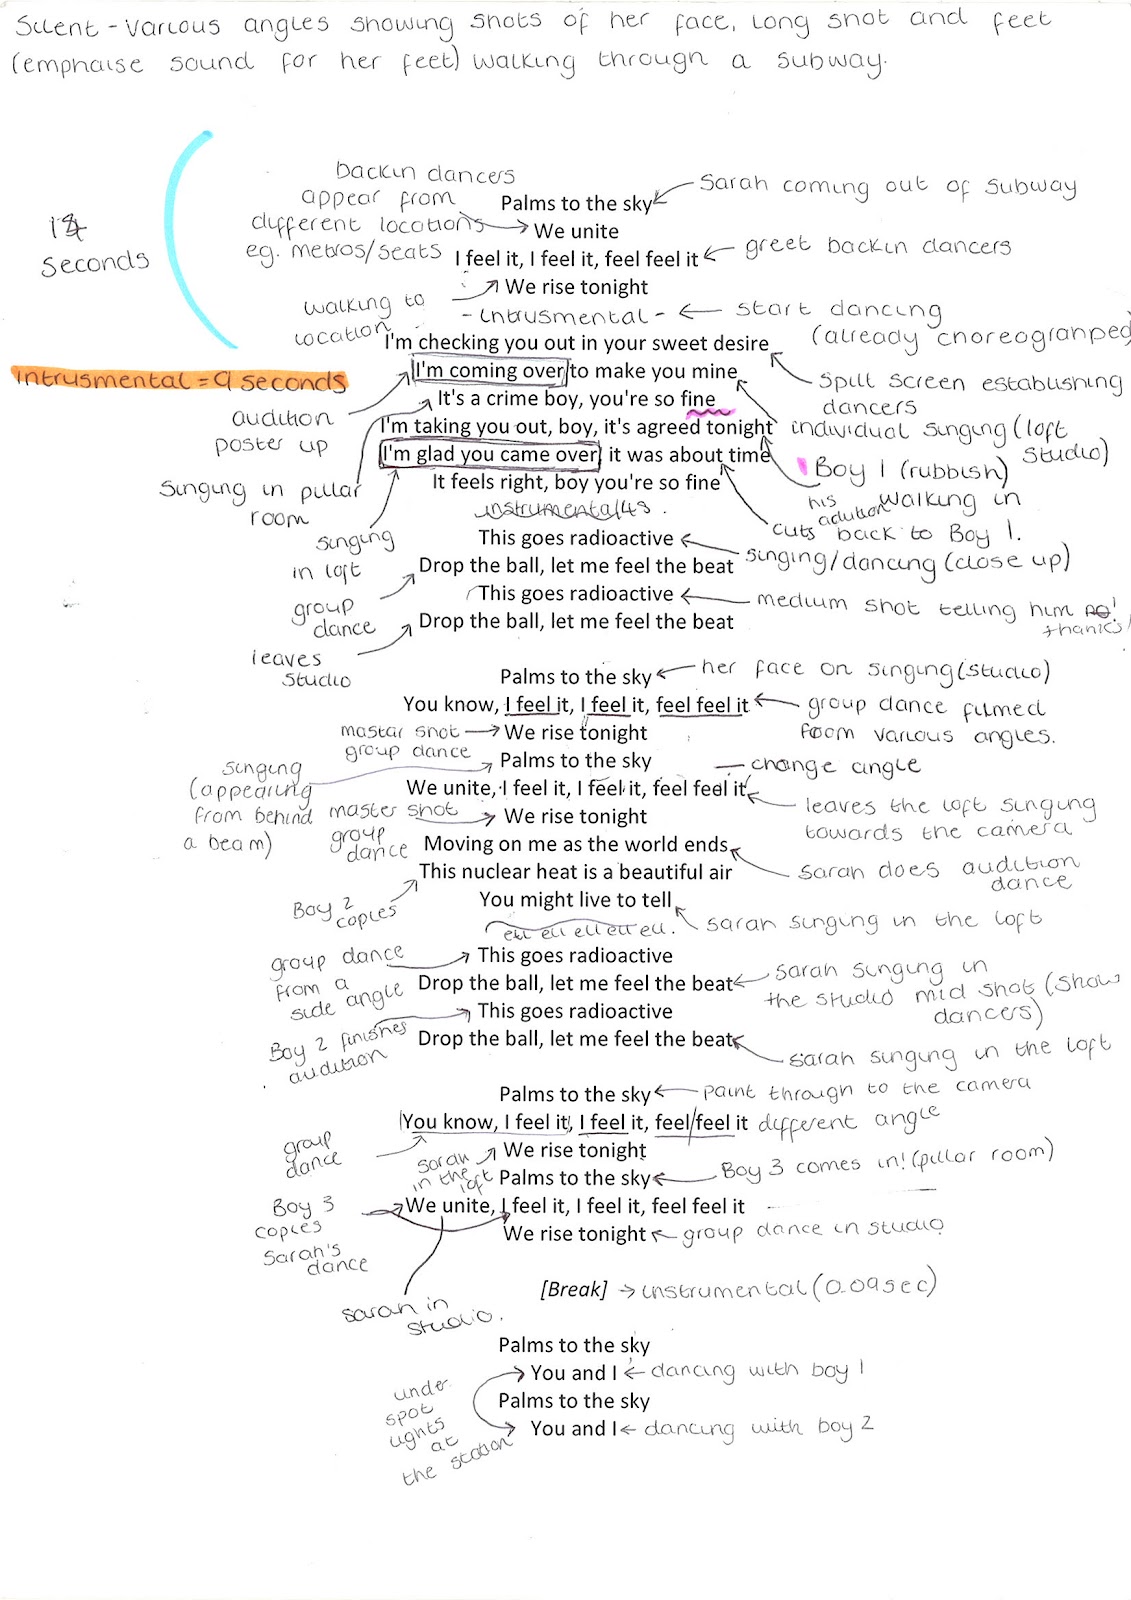 Silent - various angles showing shots of her face, long shot and feet
(emphaise sound for her feet) walking through a subway.
backin dancers
appear from
different locations
eg. metros/seats
Palms to the sky
Sarah coming out of subway
We unite
I feel it, I feel it, feel feel it
greet backin dancers
seconds
walking to
location
We rise tonight
- intrusmental -
start dancing
(already choreogranped)
I'm checking you out in your sweet desire
Spilt screen establishing
dancers
intrusmental = 9 seconds
I'm coming over to make you mine
audition
poster up
It's a crime boy, you're so fine
individual singing (loft
studio)
I'm taking you out, boy, it's agreed tonight
Boy 1 (rubbish)
walking in
I'm glad you came over, it was about time
his
cuts back to Boy 1.
singing in pillar
room
It feels right, boy you're so fine
instrumental 4s.
singing
in loft
This goes radioactive
singing/dancing (close up)
Drop the ball, let me feel the beat
group
dance
This goes radioactive
medium shot telling him no!
thanks!
Drop the ball, let me feel the beat
leaves
studio
Palms to the sky
her face on singing (studio)
You know, I feel it, I feel it, feel feel it
group dance filmed
from various angles.
mastar shot
group dance
We rise tonight
Palms to the sky
change angle
singing
(appearing
from behind
a beam)
We unite, I feel it, I feel it, feel feel it
leaves the loft singing
towards the camera
master shot
group
dance
We rise tonight
Moving on me as the world ends
Sarah does audition
dance
This nuclear heat is a beautiful air
Boy 2
copies
You might live to tell
sarah singing in the loft
eu eu eu eu eu.
group dance
from a
side angle
This goes radioactive
Drop the ball, let me feel the beat
Sarah singing in
the studio mid shot (show
dancers)
This goes radioactive
Boy 2 finishes
audition
Drop the ball, let me feel the beat
Sarah singing in the loft
Palms to the sky
point through to the camera
You know, I feel it, I feel it, feel feel it
different angle
group
dance
sarah
in the
loft
We rise tonight
Palms to the sky
Boy 3 comes in! (pillar room)
Boy 3
copies
Sarah's
dance
We unite, I feel it, I feel it, feel feel it
We rise tonight
group dance in studio
sarah in
studio.
[Break]
instrumental (0.09sec)
Palms to the sky
You and I
dancing with boy 1
under
spot
lights
at
the station
Palms to the sky
You and I
dancing with boy 2